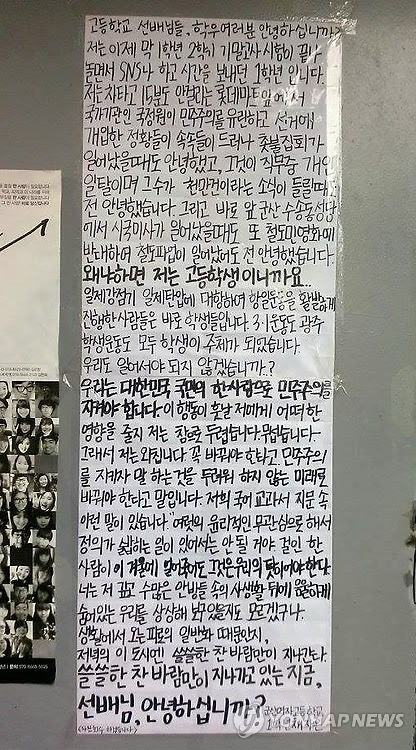 고등학교 선배님들, 학우여러분 안녕하십니까?
저는 이제 막 1학년 2학기 기말고사 시험이 끝나
놀면서 SNS나 하고 시간을 보내던 1학년 입니다.
저는 차타고 15분도 안걸리는 롯데마트 앞에서
국가기관인 국정원이 민주주의를 우롱하고 선거에
개입한 정황들이 속속들이 드러나 촛불집회가
일어났을때도 안녕했고, 그것이 직무중 개인
일탈이며 그 수가 천만건이라는 소식이 들릴때도
전 안녕했습니다. 그리고 바로 앞 군산 수송동성당
에서 시국미사가 일어났을때도 또 철도민영화에
반대하여 철도파업이 일어났어도 전 안녕했습니다.
왜냐하면 저는 고등학생이니까요..
일제강점기 일제탄압에 대항하여 항일운동을 활발하게
진행한사람들은 바로 학생들입니다. 3.1운동도 광주
학생운동도 모두 학생이 주체가 되었습니다.
우리도 일어서야 되지 않겠습니까?
우리는 대한민국 국민의 한사람으로 민주주의를
지켜야 합니다. 이 행동이 훗날 저에게 어떠한
영향을 줄지 저는 참으로 두렵습니다. 무섭습니다.
그래서 저는 외칩니다. 꼭 바꿔야 한다고. 민주주의
를 지키자 말 하는 것을 두려워 하지 않는 미래로
바꿔야 한다고 말입니다. 저희 국어 교과서 지문 속
이런 말이 있습니다. "여럿의 윤리적인 무관심으로 해서
정의가 밟히는 일이 있어서는 안 될 거야. 걸인 한
사람이 이 겨울에 얼어죽어도 그것은 우리의 탓이어야 한다.
너는 저 깊고 수많은 안방들 속의 사생활 뒤에 음흉하게
숨어있는 우리를 상상해 보고 있을지도 모르겠구나.
생활에서 오는 피로의 일반화 때문인지,
저녁의 이 도시엔 쓸쓸한 찬 바람만이 지나간다."
쓸쓸한 찬 바람만이 지나가고 있는 지금,
선배님, 안녕하십니까?
군산여자고등학교
1학년 채자은
연합뉴스
YONHAP NEWS